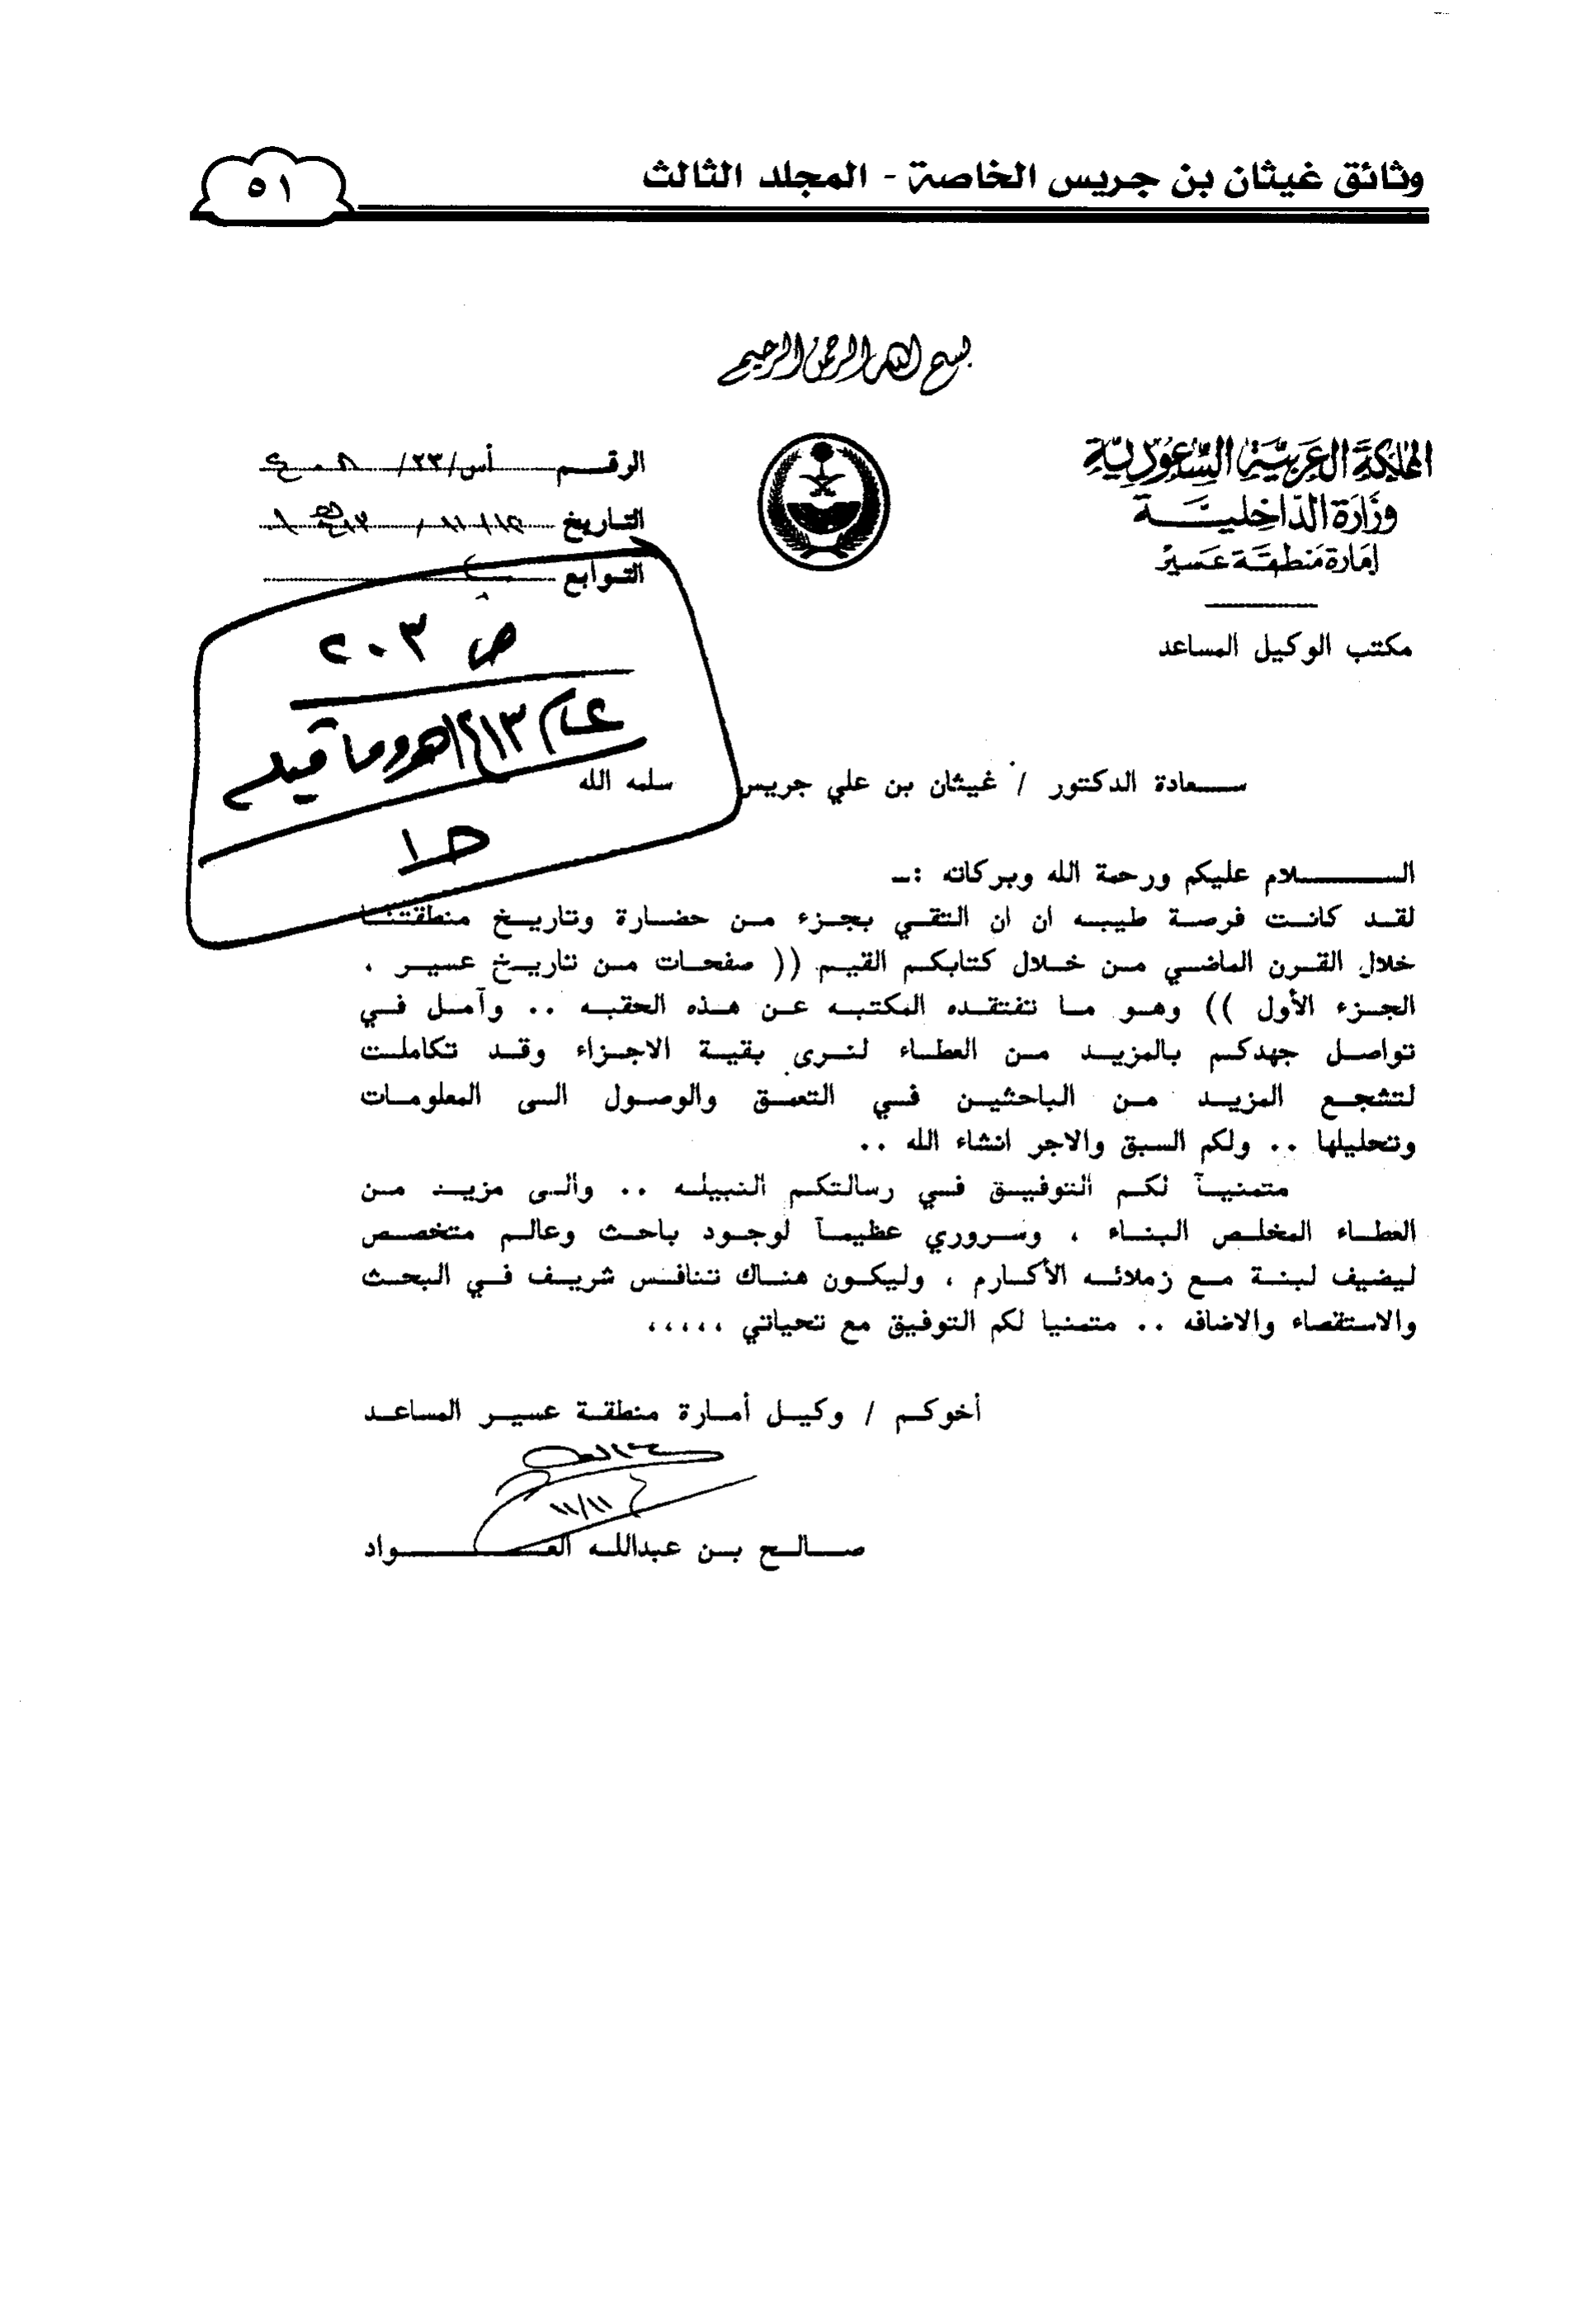 وثائق غيثان بن جريس الخاصة - المجلد الثالث
٥١
بسم الله الرحمن الرحيم
المملكة العربية السعودية
وزارة الداخلية
إمارة منطقة عسير
مكتب الوكيل المساعد
الرقم أس/٢٣/
التاريخ
التوابع
ص ٢٠٣
عام ١٤١٣هـ وما قبله
ج١
سعادة الدكتور / غيثان بن علي جريس سلمه الله
السلام عليكم ورحمة الله وبركاته :ـ
لقد كانت فرصة طيبه ان ان التقي بجزء من حضارة وتاريخ منطقتنا
خلال القرن الماضي من خلال كتابكم القيم (( صفحات من تاريخ عسير ،
الجزء الأول )) وهو ما تفتقده المكتبه عن هذه الحقبه .. وآمل في
تواصل جهدكم بالمزيد من العطاء لنرى بقية الاجزاء وقد تكاملت
لتشجع المزيد من الباحثين في التعمق والوصول الى المعلومات
وتحليلها .. ولكم السبق والاجر انشاء الله ..
متمنيآ لكم التوفيق في رسالتكم النبيله .. والى مزيد من
العطاء المخلص البناء ، وسروري عظيمآ لوجود باحث وعالم متخصص
ليضيف لبنة مع زملائه الأكارم ، وليكون هناك تنافس شريف في البحث
والاستقصاء والاضافه .. متمنيا لكم التوفيق مع تحياتي ،،،،،
أخوكم / وكيل أمارة منطقة عسير المساعد
١١/١١
صالح بن عبدالله العواد